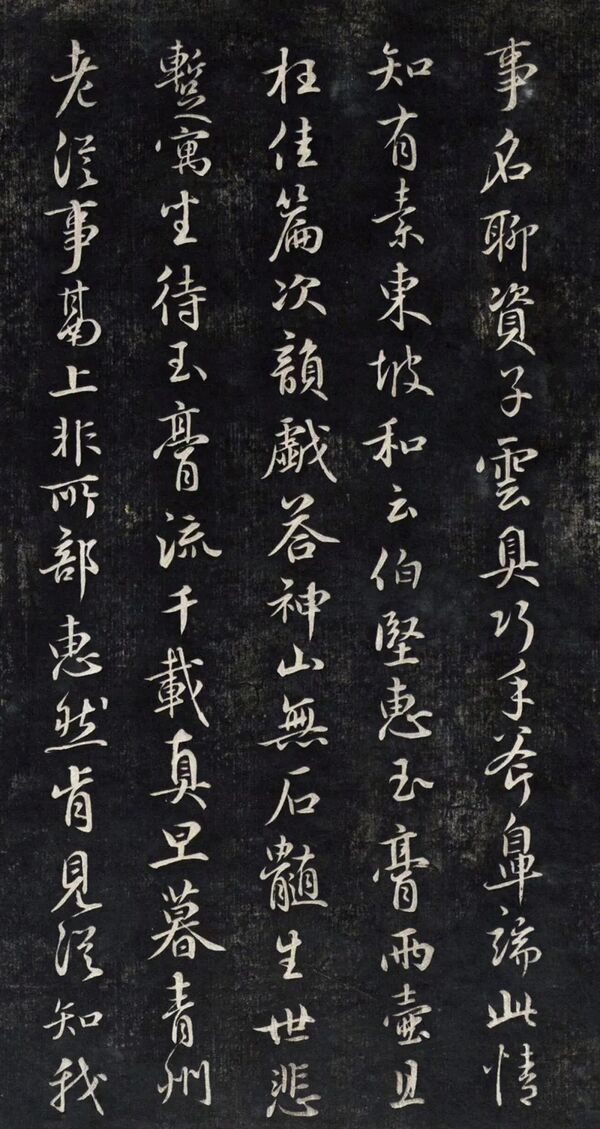 事名聊資子雲具巧手斧鼻端此情
知有素東坡和云伯堅惠玉膏兩壺且
枉佳篇次韻戲荅神山無石髓生世悲
蹔寓坐待玉膏流千載真旦暮青州
老從事鬲上非所部惠然肯見從知我